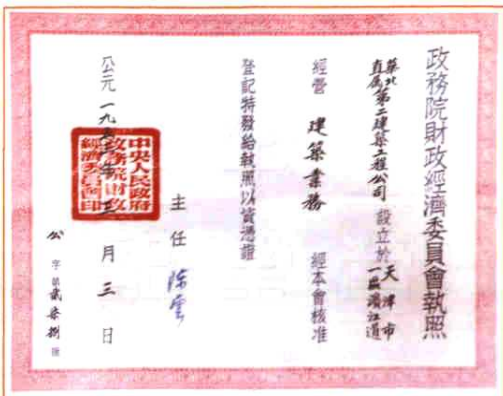 政務院財政經濟委員會執照
華北直屬第二建築工程公司 設立於 天津市一區濱江道
經營 建築業務 經本會核准
登記特發給執照以資憑證
主任 陳雲
公元一九五三年三月三日
中央人民政府政務院財政經濟委員會印
公字第貳柒捌號